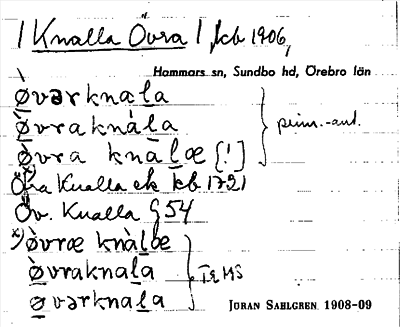 / Knalla Övra /, jkb 1906,
Hammars sn, Sundbo hd, Örebro län
øvərknala
øvraknàla
øvra knàlæ [!]
prim.-ant.
Öfra Knalla ek kb 1721
Öv. Knalla G 54
x) øvræ knàlæ
øvraknala
øvərknala
JÖRAN SAHLGREN 1908-09